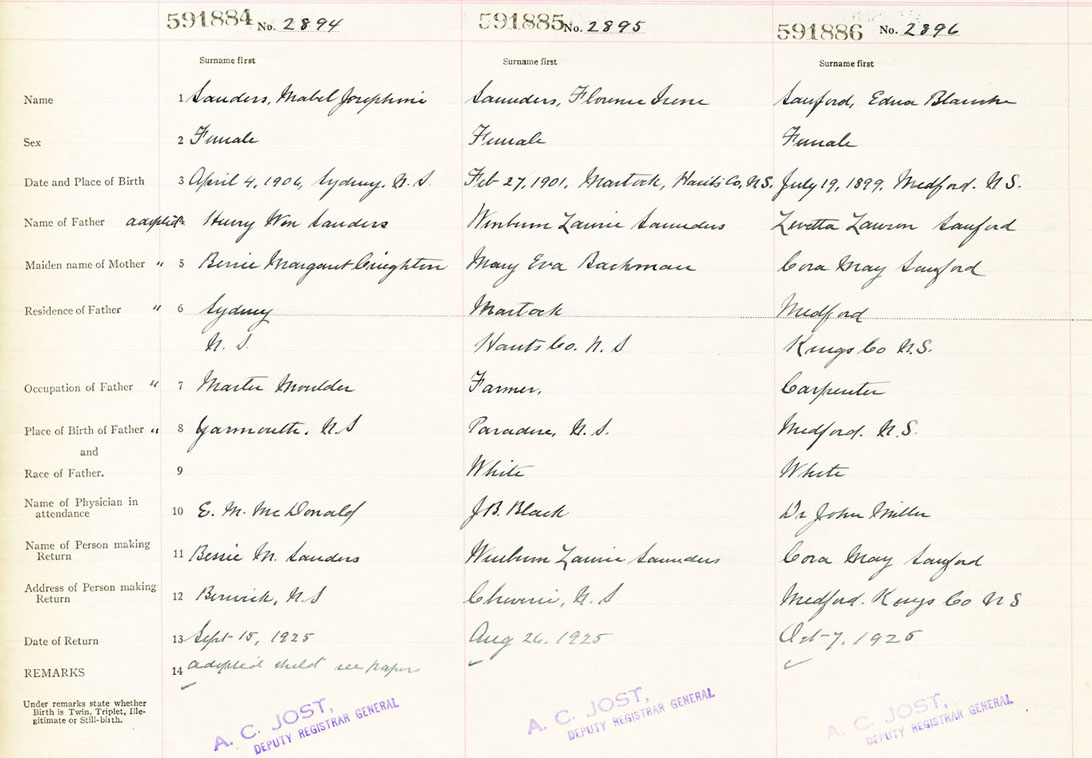 591884 No. 2894 591885 No. 2895 591886 No. 2896
Surname first Surname first Surname first
Name 1 Sanders, Mabel Josephine Saunders, Florence Irene Sanford, Edna Blanche
Sex 2 Female Female Female
Date and Place of Birth 3 April 4, 1906, Sydney. N.S. Feb 27, 1901, Martock, Hants Co, N.S. July 19, 1899, Medford. N.S.
Name of Father adopted Henry Wm Sanders Saunders Sanford
Maiden name of Mother " 5 Margaret Creighton Mary Eva Bachman Cora May Sanford
Residence of Father " 6 Sydney Martock Medford
N.S. Hants Co. N.S Kings Co N.S.
Occupation of Father " 7 Master Moulder Farmer. Carpenter
Place of Birth of Father " 8 Yarmouth. N.S Paradise, N.S. Medford. N.S.
and
Race of Father. 9 White White
Name of Physician in
attendance 10 E. M. McDonald J.B. Black Dr John Miller
Name of Person making
Return 11 M. Sanders Saunders Cora May Sanford
Address of Person making
Return 12 Berwick, N.S Cheverie, N.S Medford. Kings Co N S
Date of Return 13 Sept-15, 1925 Aug 26. 1925 Oct-7, 1925
REMARKS 14 adopted child see papers
Under remarks state whether
Birth is Twin, Triplet, Ille-
gitimate or Still-birth.
A. C. JOST, A. C. JOST, A. C. JOST,
DEPUTY REGISTRAR GENERAL DEPUTY REGISTRAR GENERAL DEPUTY REGISTRAR GENERAL